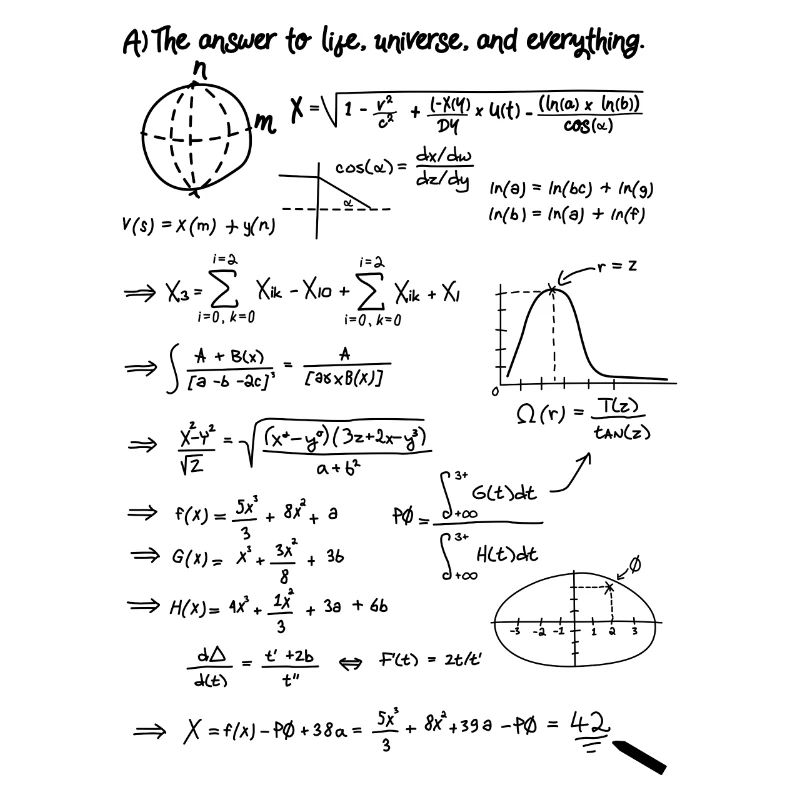 A) The answer to life, universe, and everything.
n
m
X = √(1 - v²/c² + (-X(y)/DY x U(t) - ((ln(a) x ln(b))/cos(α))
cos(α) = dx/dw / dz/dy
α
ln(a) = ln(bc) + ln(g)
ln(b) = ln(a) + ln(f)
V(s) = x(m) + y(n)
⇒ X₃ = ∑ i=2 i=0, k=0 Xik - X10 + ∑ i=2 i=0, k=0 Xik + X1
r = z
0
⇒ ∫ A + B(x) / [a - b - 2c]³ = A / [ax x B(x)]
Ω(r) = T(z) / tAN(z)
⇒ x² - y² / √2 = √((x⁺ - y⁰)(3z + 2x - y³) / a + b²)
⇒ f(x) = 5x³/3 + 8x² + a
PØ = ∫ 3+ +∞ G(t)dt / ∫ 3+ +∞ H(t)dt
⇒ G(x) = x³ + 3x²/8 + 3b
⇒ H(x) = 4x³ + 1x²/3 + 3a + 6b
Ø
-3 -2 -1 1 2 3
dΔ/d(t) = t' + 2b / t'' ⇔ F'(t) = 2t/t'
⇒ X = f(x) - PØ + 38a = 5x³/3 + 8x² + 39a - PØ = 42